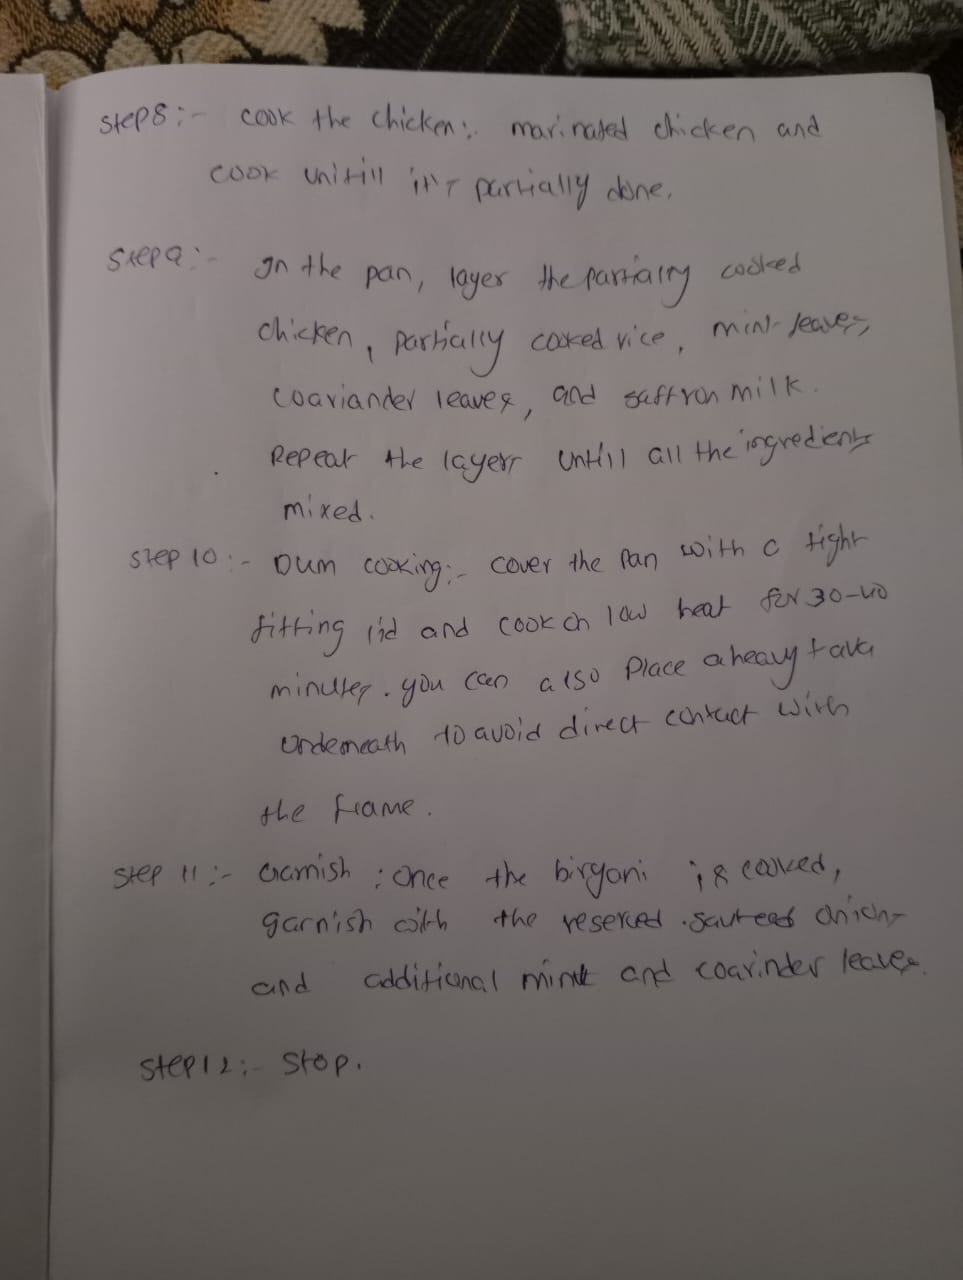 step8:- cook the chicken:. marinated chicken and
cook unitill it's partially done.
Step9:- In the pan, layer the partially cooked
chicken, partially cooked rice, mint leaves,
coariander leaves, and saffron milk.
Repeat the layers untill all the ingredients
mixed.
step 10:- Dum cooking:- cover the pan with a tight
fitting lid and cook on low heat for 30-40
minutes. you can also place a heavy tava
underneath to avoid direct contact with
the flame.
step 11:- Garnish : once the biryani is cooked,
garnish with the reserved sauteed onion
and additional mint and coarinder leaves.
step12:- Stop.